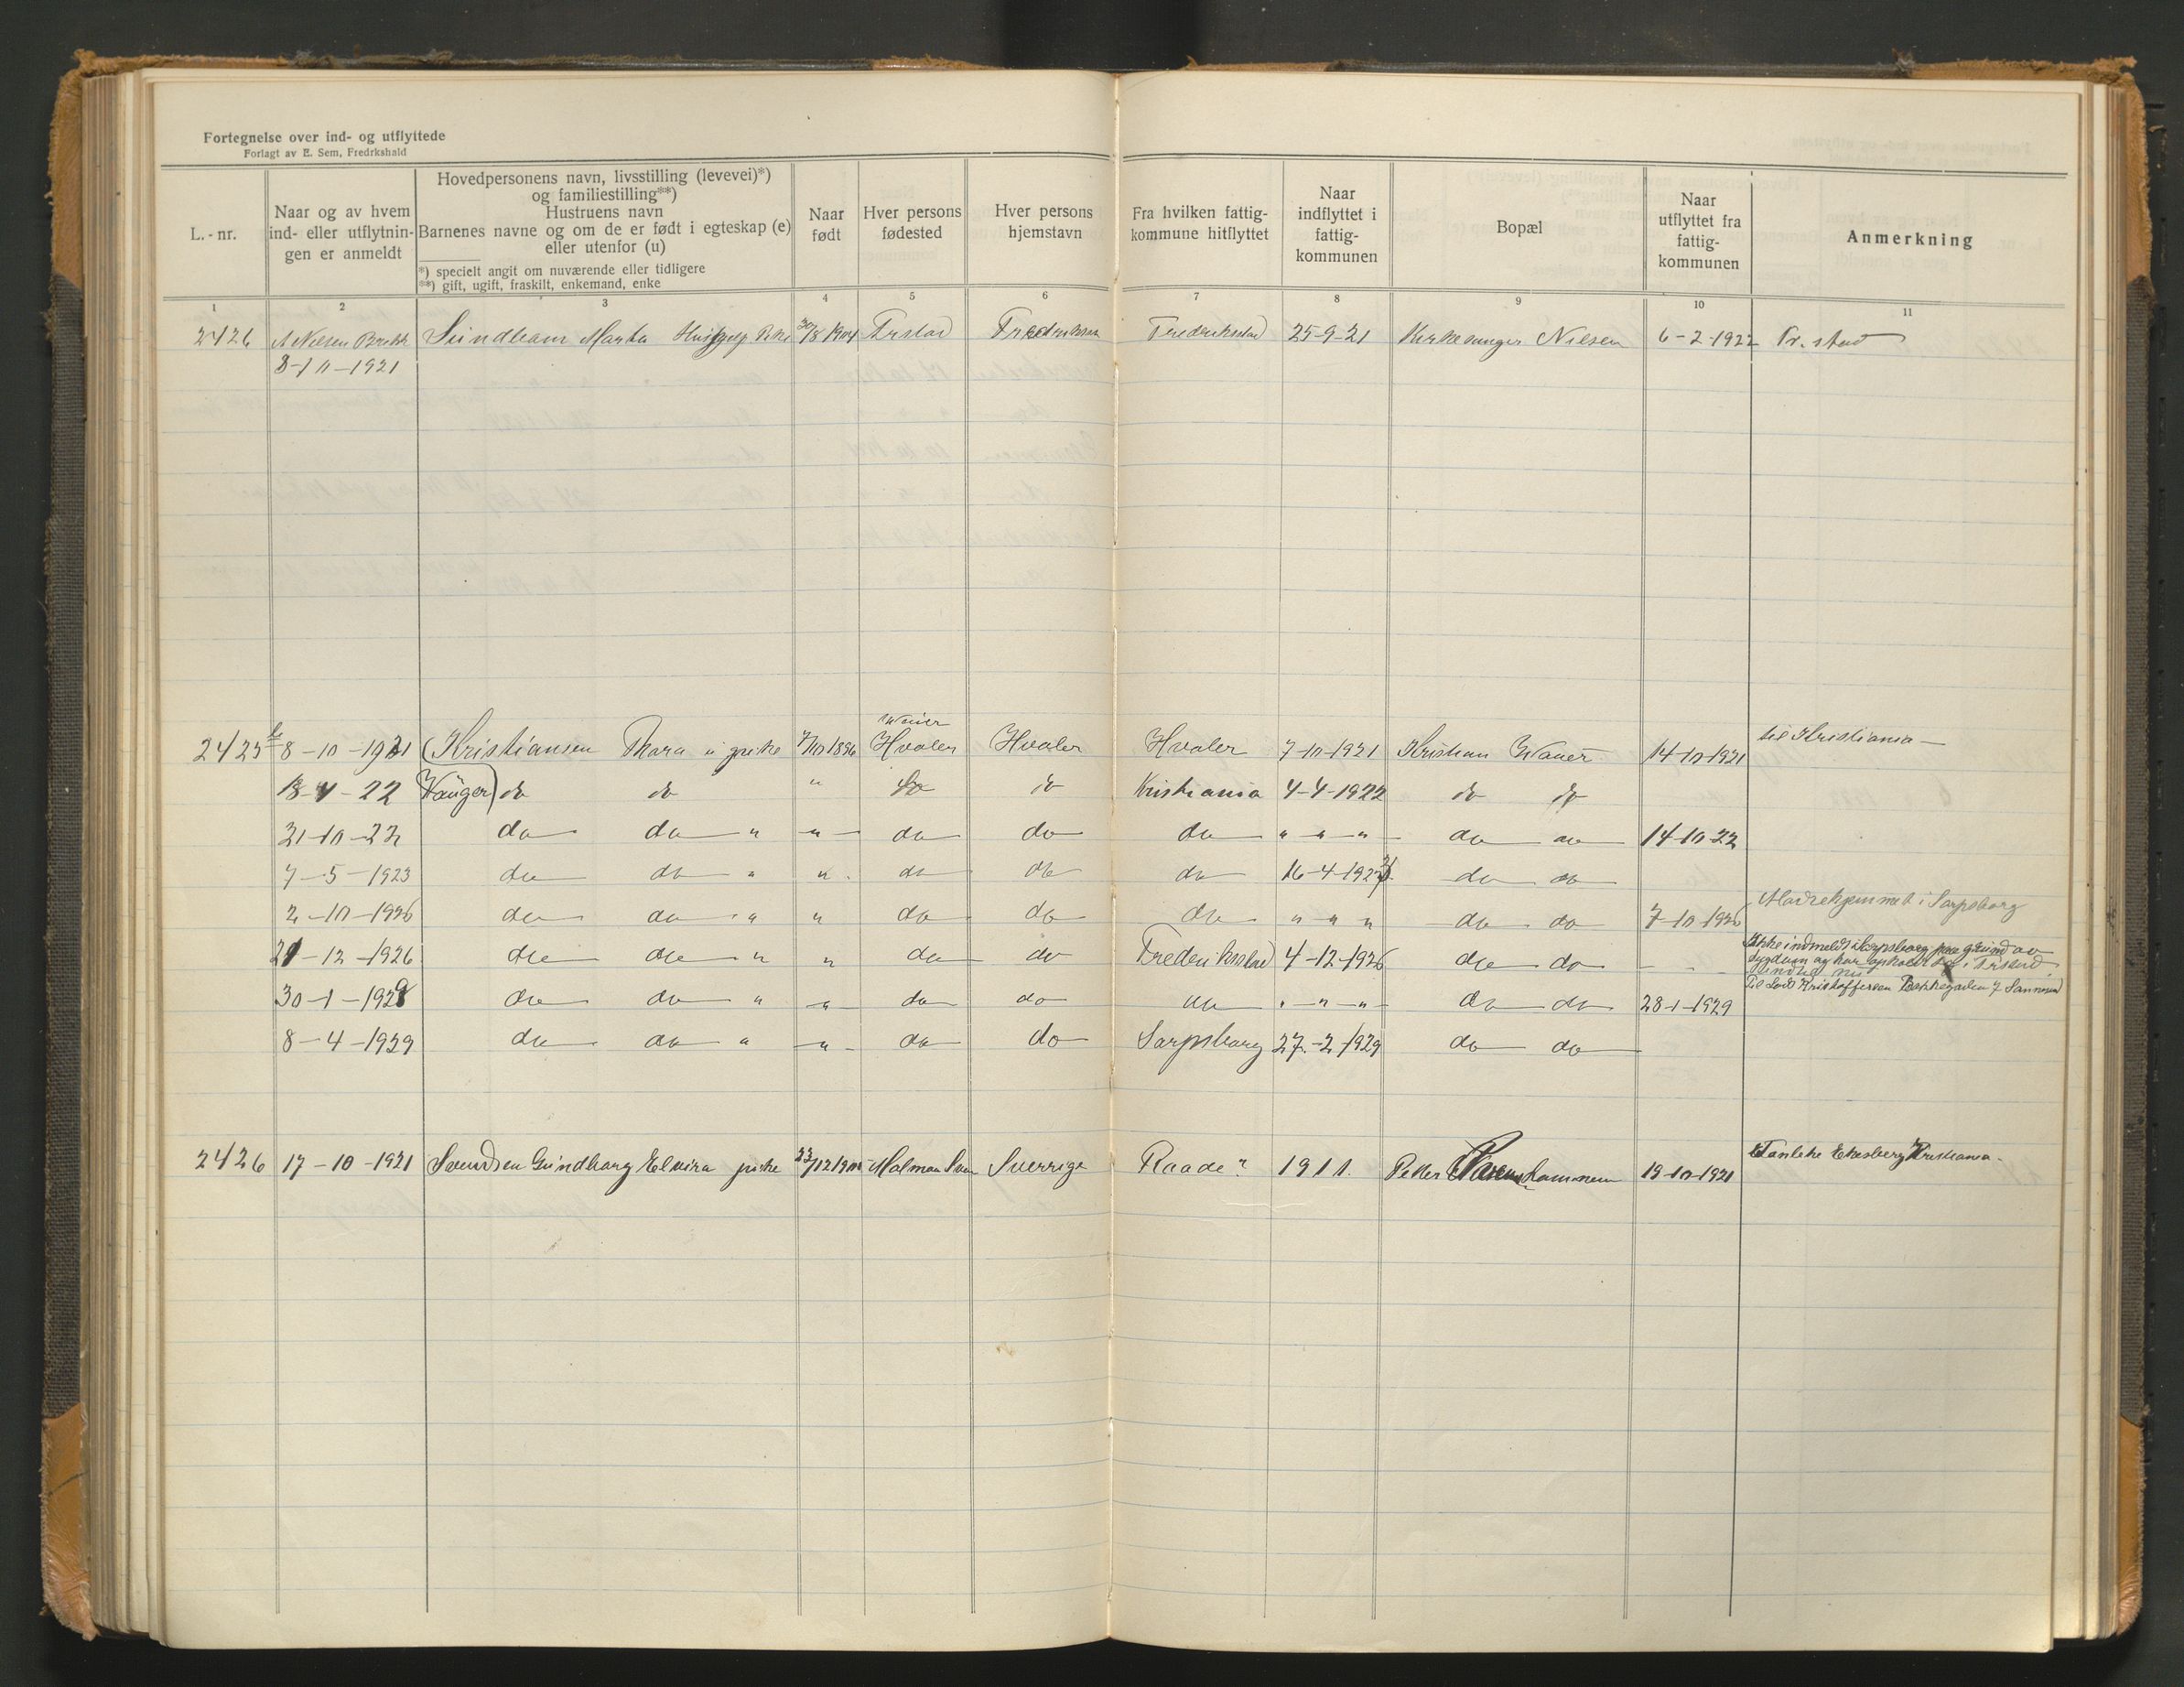 Fortegnelse over ind- og utflyttede
Forlagt av E. Sem, Fredrkshald
L.-nr.
Naar og av hvem ind- eller utflytnin-gen er anmeldt
Hovedpersonens navn, livsstilling (levevei)*)
og familiestilling**)
Hustruens navn
Barnenes navne og om de er født i egteskap (e)
eller utenfor (u)
*) specielt angit om nuværende eller tidligere
**) gift, ugift, fraskilt, enkemand, enke
Naar født
Hver persons fødested
Hver persons hjemstavn
Fra hvilken fattig-kommune hitflyttet
Naar indflyttet i fattig-kommunen
Bopæl
Naar utflyttet fra fattig-kommunen
Anmerkning
1 2 3 4 5 6 7 8 9 10 11
2426 A Nilsen Brekk Sundham Marta Pike 30/8 1904 Frstad Fredrikstad Fredriksstad 25-9-21 Kirkesanger Nilsen 6-2-1922 Fr.stad
8-10-1921
Wauer
2425 b 8-10-1921 (Kristiansen Thora u pike 7/10 1896 Hvaler Hvaler Hvaler 7-10-1921 Kristian Wauer 14-10-1921 til Kristiania
18-4-22 Wauger) do do " do do Kristiania 4-4-1922 do do
21-10-22 do do " " do do do " " " do do 14-10-22
7-5-1923 do do " " do do do 16-4-1923 do do
2-10-1926 do do " " do do do " " " do do 7-10-1926 Mødrehjemmet i Sarpsborg
21-12-1926 do do " " do do Frederiksstad 4-12-1926 do do Ikke indmeldt i Sarpsborg paa grund av
sygdom og har opholdt sig i Frstad
indtil nu
30-1-1929 do do " " do do do " " " do do 28-1-1929 Til Lods Kristoffersen Bakkegaten 7 Sannesund
8-4-1929 do do " " do do Sarpsborg 27-2-1929 do do
2426 17-10-1921 Svendsen Gundborg Elvira pike 23/12 Malmøn Sverrige Raade? 1911. Petter Hammeren 19-10-1921 Ekeberg Kristiania